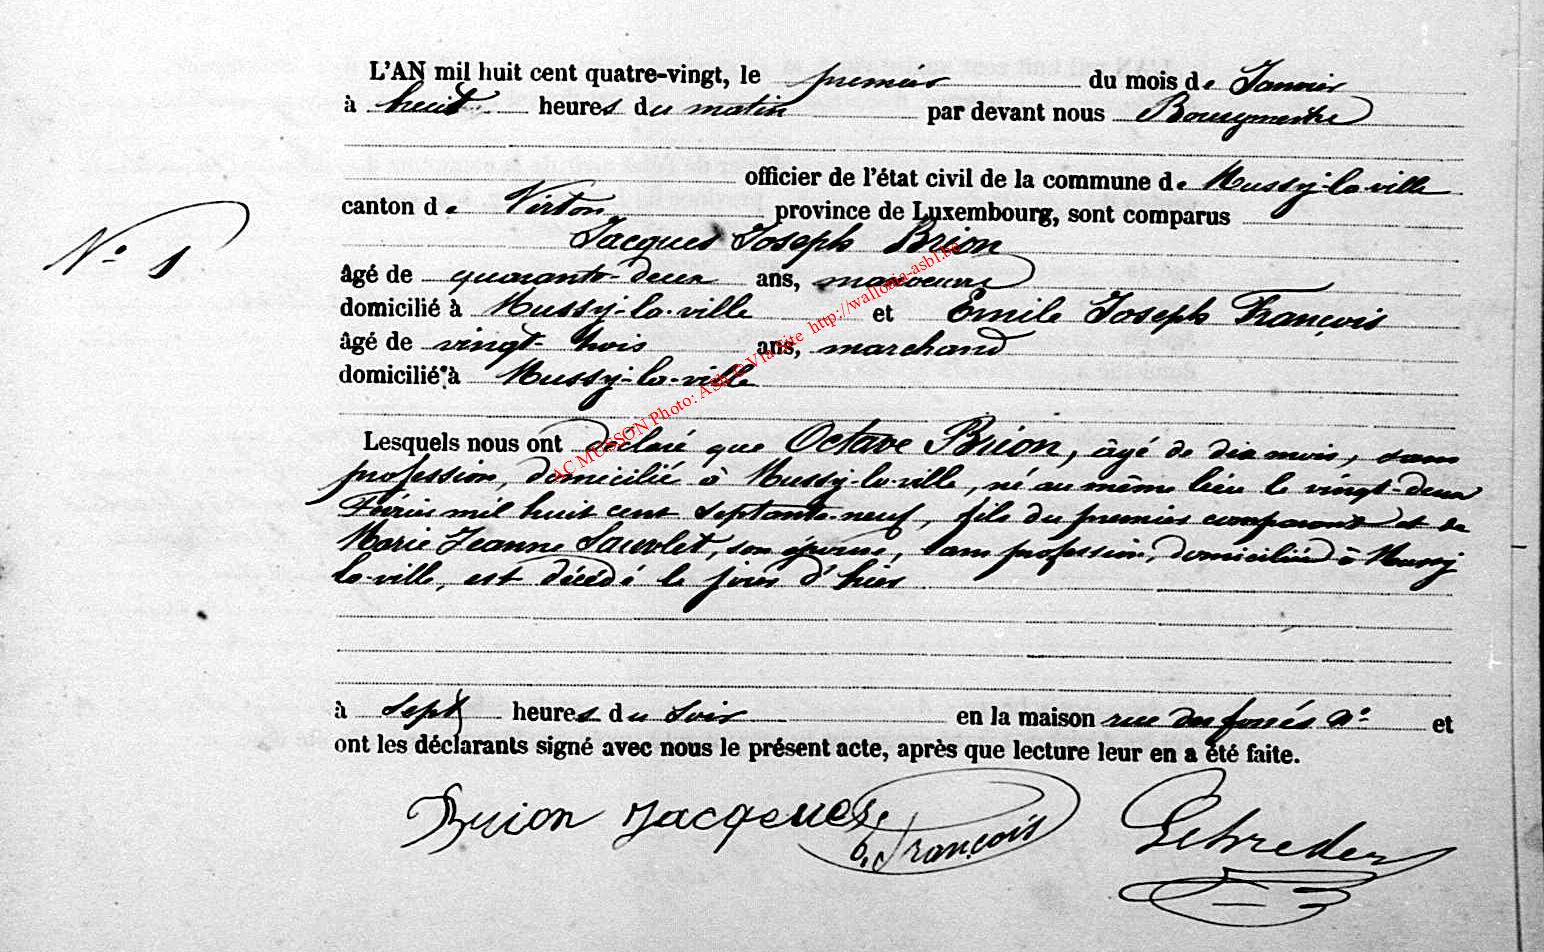 L'AN mil huit cent quatre-vingt, le premier du mois de Janvier
à huit heures du matin par devant nous Bourgmestre
officier de l'état civil de la commune de Mussy-la-ville
canton de Virton province de Luxembourg, sont comparus
N° 1
Jacques Joseph Brion
âgé de quarante-deux ans, manoeuvre
domicilié à Mussy-la-ville et Emile Joseph François
âgé de vingt-trois ans, marchand
domicilié à Mussy-la-ville
Lesquels nous ont déclaré que Octave Brion, âgé de dix mois, sans
profession, domicilié à Mussy-la-ville, né au même lieu le vingt-deux
Février mil huit cent septante-neuf, fils du premier comparant et de
Marie Jeanne, son épouse, sans profession, domiciliée à Mussy
la-ville, est décédé le jour d'hier
à sept heures du soir en la maison rue des N° et
ont les déclarants signé avec nous le présent acte, après que lecture leur en a été faite.
Brion Jacques
François
AC MUSSON Photo: Asbl © Via Site http://wallonia-asbl.be